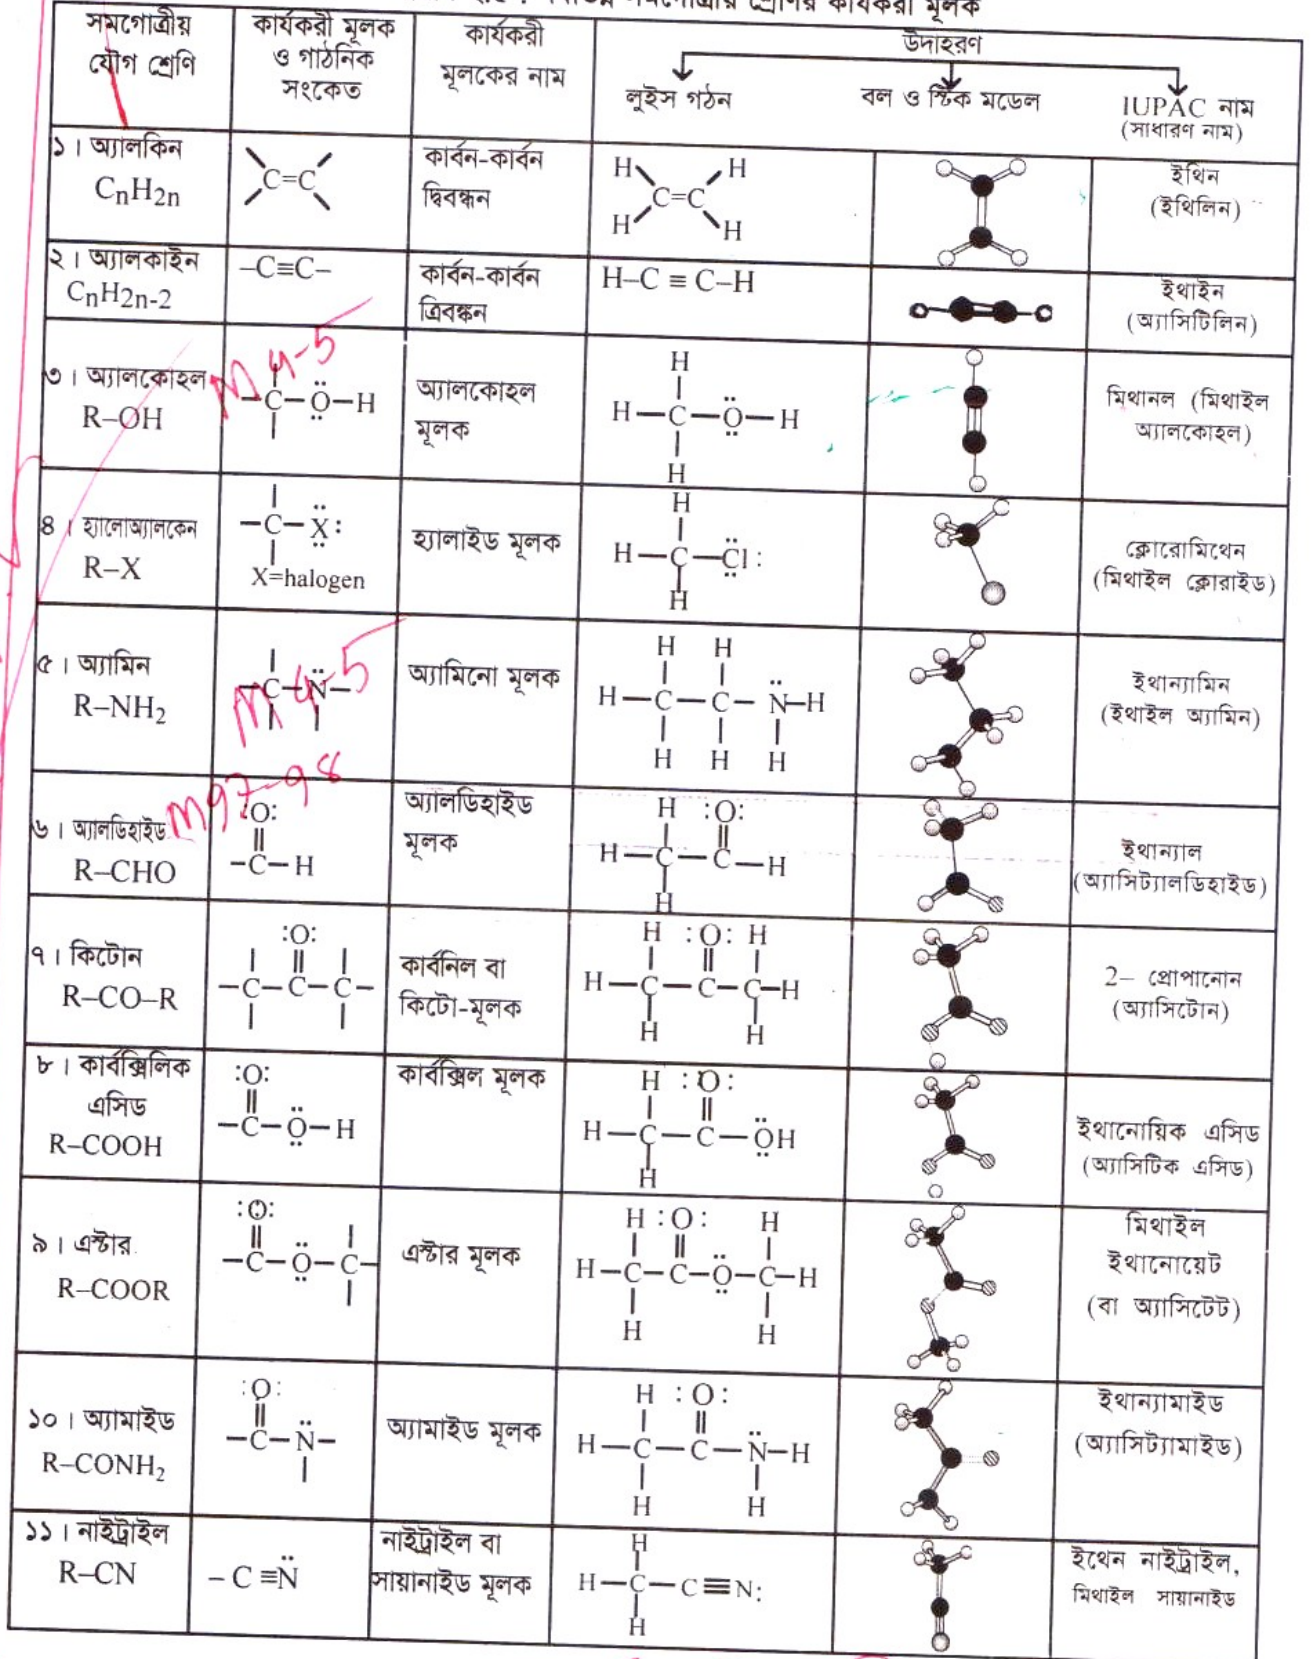 সমগোত্রীয় শ্রেণির কার্যকরী মূলক
সমগোত্রীয়
যৌগ শ্রেণি
কার্যকরী মূলক
ও গাঠনিক
সংকেত
কার্যকরী
মূলকের নাম
উদাহরণ
লুইস গঠন
বল ও স্টিক মডেল
IUPAC নাম
(সাধারণ নাম)
১। অ্যালকিন
CnH2n
C=C
কার্বন-কার্বন
দ্বিবন্ধন
H H
C=C
H H
ইথিন
(ইথিলিন)
২। অ্যালকাইন
CnH2n-2
–C≡C–
কার্বন-কার্বন
ত্রিবন্ধন
H–C ≡ C–H
ইথাইন
(অ্যাসিটিলিন)
৩। অ্যালকোহল
R–OH
M 4-5
–C–Ö–H
অ্যালকোহল
মূলক
H
H–C–Ö–H
H
মিথানল (মিথাইল
অ্যালকোহল)
৪। হ্যালোঅ্যালকেন
R–X
–C–Ẍ:
X=halogen
হ্যালাইড মূলক
H
H–C–C̈l:
H
ক্লোরোমিথেন
(মিথাইল ক্লোরাইড)
৫। অ্যামিন
R–NH2
M 4-5
–C–N̈–
অ্যামিনো মূলক
H H
H–C–C–N̈–H
H H H
ইথান্যামিন
(ইথাইল অ্যামিন)
৬। অ্যালডিহাইড
R–CHO
M97-98
:O:
–C–H
অ্যালডিহাইড
মূলক
H :O:
H–C–C–H
H
ইথান্যাল
(অ্যাসিট্যালডিহাইড)
৭। কিটোন
R–CO–R
:O:
–C–C–C–
কার্বনিল বা
কিটো-মূলক
H :O: H
H–C–C–C–H
H H
2– প্রোপানোন
(অ্যাসিটোন)
৮। কার্বক্সিলিক
এসিড
R–COOH
:O:
–C–Ö–H
কার্বক্সিল মূলক
H :O:
H–C–C–ÖH
H
ইথানোয়িক এসিড
(অ্যাসিটিক এসিড)
৯। এস্টার
R–COOR
:O:
–C–Ö–C–
এস্টার মূলক
H :O: H
H–C–C–Ö–C–H
H H
মিথাইল
ইথানোয়েট
(বা অ্যাসিটেট)
১০। অ্যামাইড
R–CONH2
:O:
–C–N̈–
অ্যামাইড মূলক
H :O:
H–C–C–N̈–H
H H
ইথান্যামাইড
(অ্যাসিট্যামাইড)
১১। নাইট্রাইল
R–CN
– C ≡N̈
নাইট্রাইল বা
সায়ানাইড মূলক
H
H–C–C≡N:
H
ইথেন নাইট্রাইল,
মিথাইল সায়ানাইড